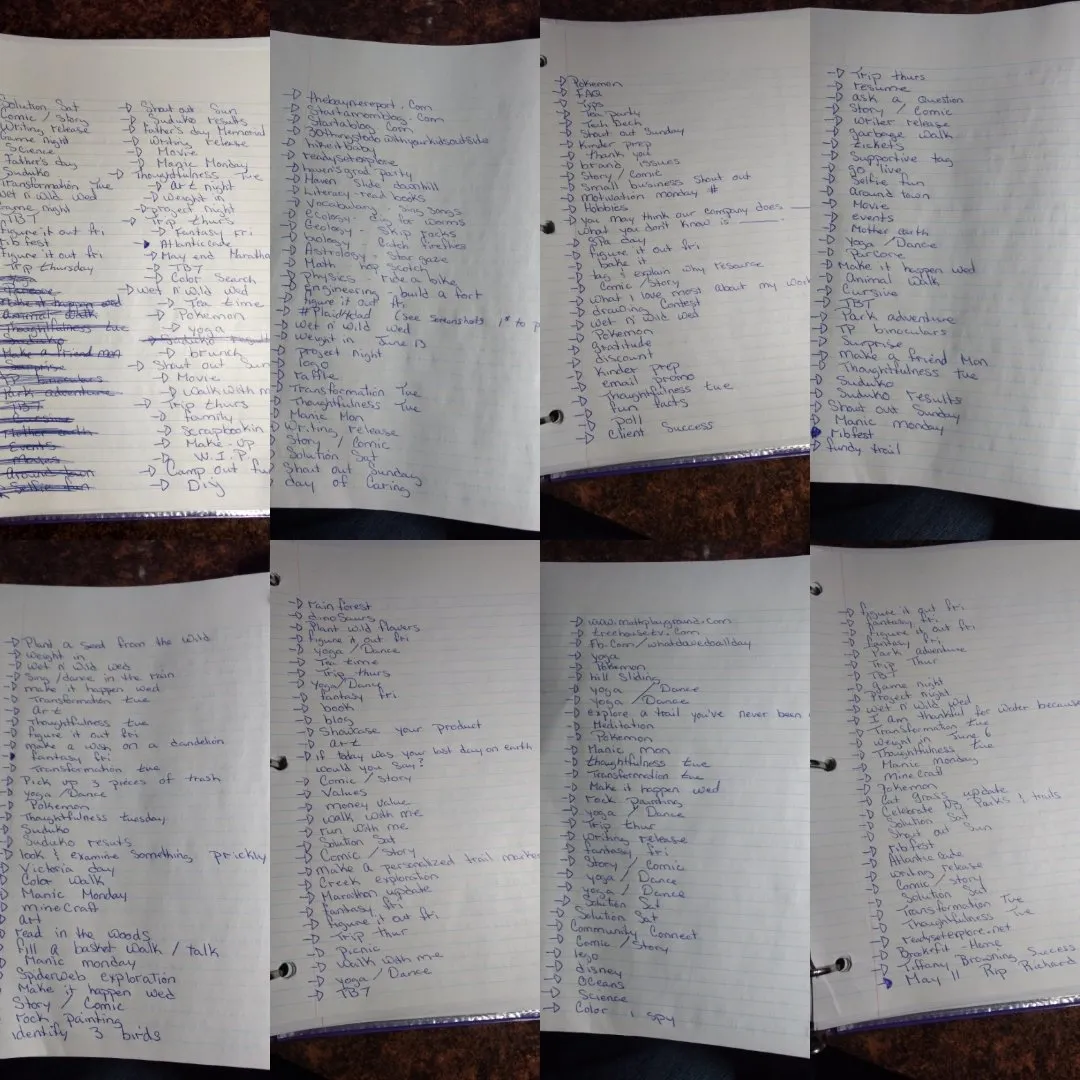 Solution Sat
Comic / Story
Writing release
Game night
Science
Father's day
Suduko
Transformation Tue
Wet n' wild wed
Game night
TBT
Figure it out fri
rib fest
Figure it out fri
Trip thursday
Make it happen wed
Animal walk
Thoughtfulness tue
Suduko
Make a friend mon
Surprise
TP binoculars
Park adventure
TBT
Cursive
Mother earth
Events
Movies
Around town
Selfie fun
Shout out Sun
Suduko results
Father's day Memorial
Writing release
Movie
Manic Monday
Thoughtfulness Tue
Art night
Weight in
project night
Trip thurs
Fantasy Fri
Atlanticade
May end Maratho
TBT
Color Search
wet n' wild wed
Tea time
Pokemon
yoga
Suduko result
brunch
Shout out Sun
Movie
walk with m
Trip thurs
family
Scrapbookin
Make-up
W.I.P.
Camp out fu
Diy
thebaynereport.com
Startamomblog.com
Startablog.com
30thingstodowithyourkidsoutside
hikeitbaby
readysetexplore
haven's grad party
Haven Slide downhill
Literacy read books
Vocabulary - Sing songs
ecology - Dig for worms
Geology - Skip rocks
biology - Catch fireflies
Astrology - Star gaze
Math - hop scotch
physics - ride a bike
engineering - build a fort
figure it out fri
#Plaid4dad (see screenshots 1st to p
Wet n' wild wed
Weight in June 13
project night
logo
raffle
Transformation Tue
Thoughtfulness Tue
Manic Mon
Writing release
Story / Comic
Solution Sat
Shout out Sunday
day of Caring
Pokemon
FAQ
Tips
Tea party
Tech Deck
Shout out Sunday
Kinder prep
thank you
brand issues
Story / comic
Small business Shout out
motivation monday #
Hobbies
you may think our company does ___
what you don't know is ___
Spa day
figure it out fri
bake it
tag & explain why resource
Comic / Story
what I love most about my work
drawing Contest
wet n' wild wed
Pokemon
gratitude
discount
Kinder prep
email promo
Thoughtfulness tue
fun facts
poll
Client Success
Trip thurs
resume
ask a Question
Story / Comic
Writer release
garbage walk
tickets
Supportive tag
go live
Selfie fun
Around town
Movie
events
Mother earth
Yoga / Dance
Parcore
Make it happen wed
Animal walk
Cursive
TBT
Park adventure
TP binoculars
Surprise
make a friend Mon
Thoughtfulness tue
Suduko
Suduko results
Shout out Sunday
Manic monday
ribfest
fundy trail
Plant a seed from the wild
Weight in
Wet n' wild wed
Sing / dance in the rain
make it happen wed
Transformation tue
art
Thoughtfulness tue
figure it out fri
make a wish on a dandelion
fantasy fri
Transformation tue
Pick up 3 pieces of trash
yoga / Dance
Pokemon
Thoughtfulness tuesday
Suduko
Suduko results
look & examine something prickly
Victoria day
Color walk
Manic Monday
mineCraft
art
read in the woods
fill a basket walk / talk
Manic monday
Spiderweb exploration
Make it happen wed
Story / Comic
rock painting
identify 3 birds
rain forest
dinosaurs
Plant wild flowers
figure it out fri
yoga / Dance
Tea time
Trip thurs
yoga / Dance
fantasy fri
book
blog
Showcase your product
art
if today was your last day on earth
would you Sun?
Comic / story
Values
money value
walk with me
run with me
Solution Sat
Comic / Story
make a personalized trail marker
Creek exploration
Marathon update
fantasy fri
figure it out fri
Trip thur
Picnic
walk with me
yoga / Dance
TBT
www.mathplayground.com
treehousetv.com
Fb.com/whatdavedoallday
yoga
Pokemon
hill sliding
yoga / Dance
yoga / Dance
explore a trail you've never been
Meditation
Pokemon
Manic mon
thoughtfulness tue
Transformation tue
Make it happen wed
rock painting
yoga / Dance
Trip thur
writing release
fantasy fri
Story / Comic
yoga / Dance
yoga / Dance
Solution Sat
Solution Sat
Community Connect
Comic / Story
lego
disney
Oceans
Science
Color I spy
figure it out fri
fantasy fri
figure it out fri
fantasy fri
Park adventure
Trip Thur
TBT
game night
Project night
wet n' wild wed
I am thankful for water because
Transformation tue
weight in June 6
Thoughtfulness tue
Manic monday
mineCraft
pokemon
Cat grass update
Celebrate Dig Parks & trails
Solution Sat
Shout out Sun
ribfest
Atlanticade
writing release
Comic / Story
Solution Sat
Transformation Tue
Thoughtfulness Tue
readysetexplore.net
Brookfit - Home
Tiffany Browning Success
May 11 Rip Richard